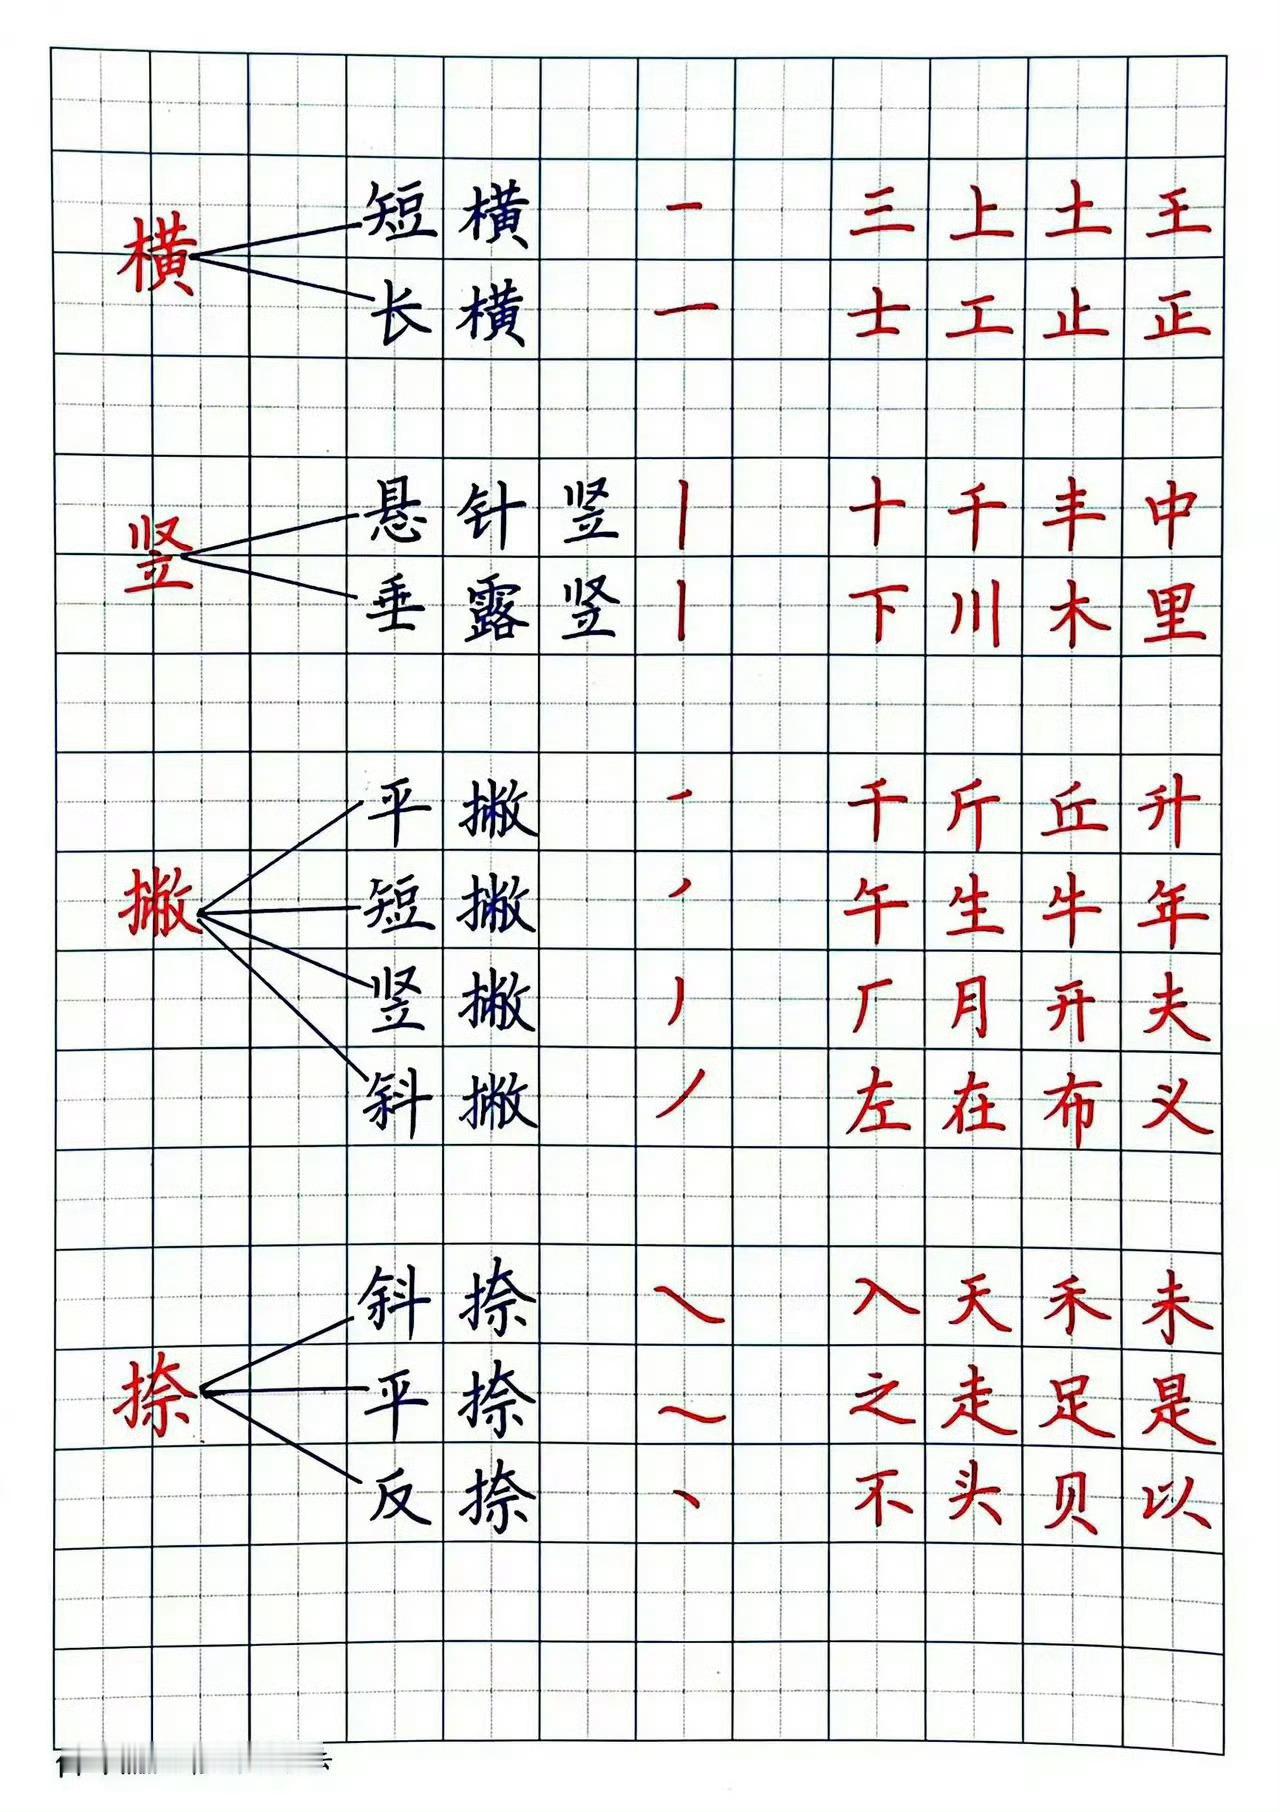 横
短横 一 三上土王
长横 一 士工止正
竖
悬针竖 丨 十千丰中
垂露竖 丨 下川木里
撇
平撇 ㇒ 千斤丘升
短撇 ㇒ 午生牛年
竖撇 丿 厂月开夫
斜撇 丿 左在布义
捺
斜捺 ㇏ 入天禾未
平捺 ㇏ 之走足是
反捺 ㇔ 不头贝以